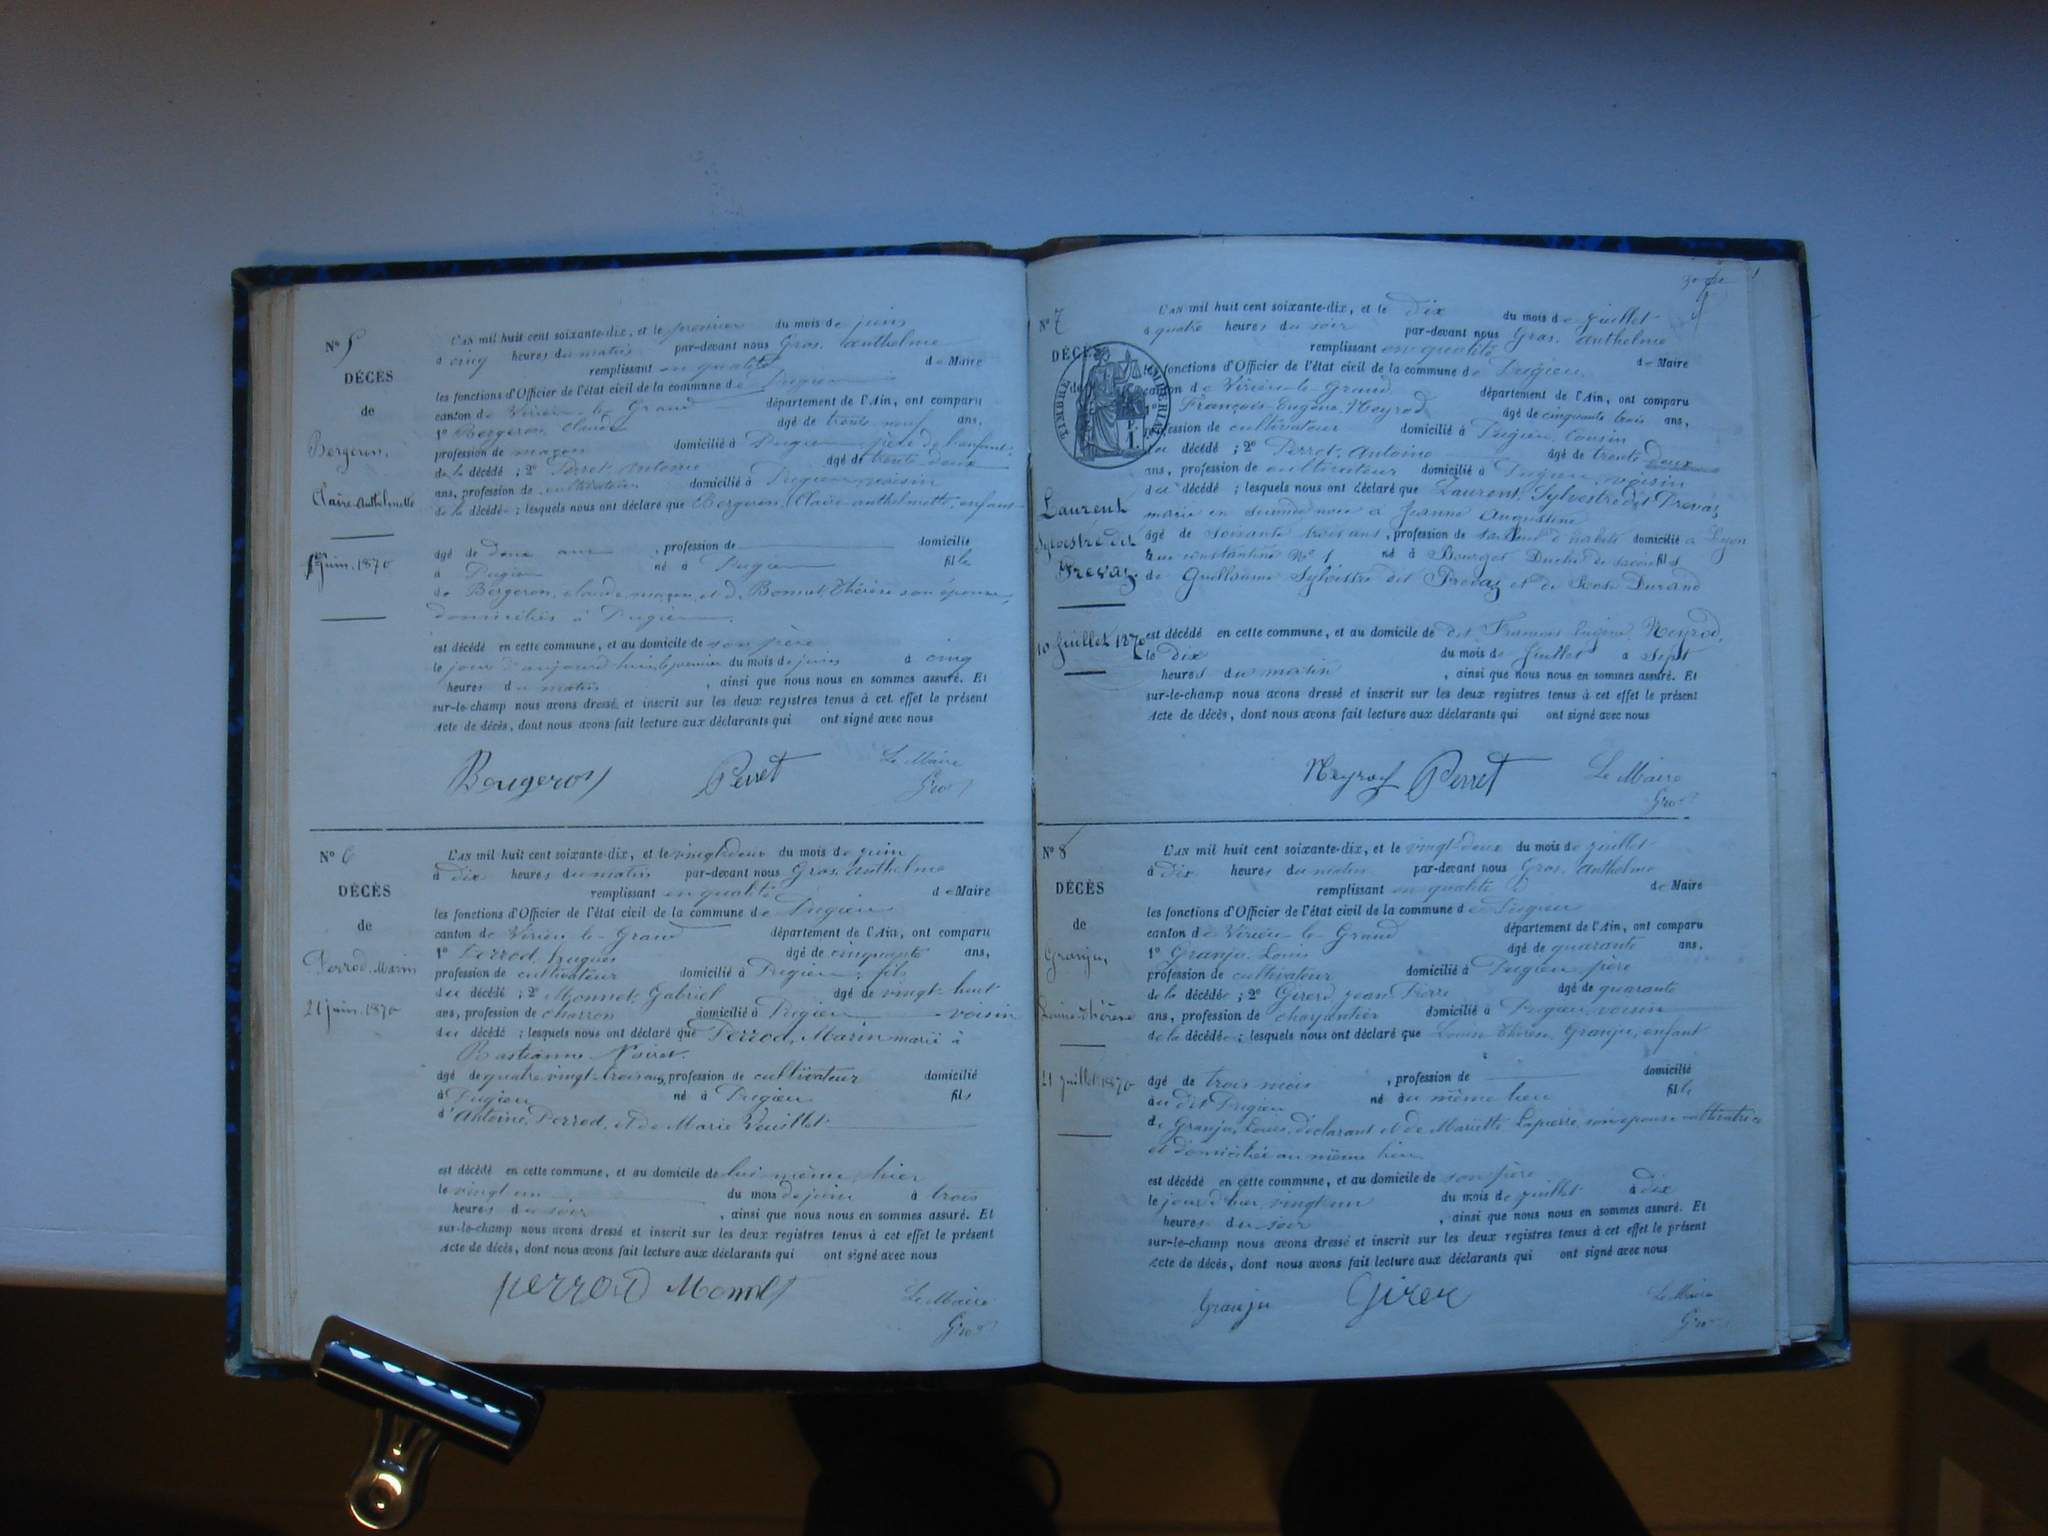 N° 5
DÉCÈS
de
Bergeron,
Claire Anthelmette
1er juin 1870
L'AN mil huit cent soixante-dix, et le premier du mois de juin
à cinq heures du matin par-devant nous Gros, Anthelme
remplissant en qualité de Maire
les fonctions d'Officier de l'état civil de la commune de Pugieu
canton de Virieu-le-Grand département de l'Ain, ont comparu
1° Bergeron, Claude âgé de trente neuf ans,
profession de maçon domicilié à Pugieu, père de l'enfant
de la décédé ; 2° Perret, Antoine âgé de trente-deux
ans, profession de cultivateur domicilié à Pugieu, voisin
de la décédée ; lesquels nous ont déclaré que Bergeron, Claire-anthelmette, enfant
âgé de deux ans , profession de domicilié
à Pugieu né à Pugieu fille
de Bergeron, claude, maçon, et de Bonnet, Thérèse son épouse,
domiciliés à Pugieu.
est décédé en cette commune, et au domicile de son père
le jour d'aujourd'hui, le premier du mois de juin à cinq
heures du matin , ainsi que nous nous en sommes assuré. Et
sur-le-champ nous avons dressé et inscrit sur les deux registres tenus à cet effet le présent
Acte de décès, dont nous avons fait lecture aux déclarants qui ont signé avec nous
Bergeron Perret Le Maire
Gros
N° 6
DÉCÈS
de
Perrod, Marin
21 juin 1870
L'AN mil huit cent soixante-dix, et le vingt-deux du mois de juin
à dix heures du matin par-devant nous Gros, Anthelme
remplissant en qualité de Maire
les fonctions d'Officier de l'état civil de la commune de Pugieu
canton de Virieu-le-Grand département de l'Ain, ont comparu
1° Perrod, hugues âgé de cinquante ans,
profession de cultivateur domicilié à Pugieu, fils
du décédé ; 2° Monnet, Gabriel âgé de vingt-huit
ans, profession de charron domicilié à Pugieu voisin
du décédé ; lesquels nous ont déclaré que Perrod, Marin marié à
âgé de quatre vingt-trois ans, profession de cultivateur domicilié
à Pugieu né à Pugieu fils
d'Antoine Perrod, et de Marie
est décédé en cette commune, et au domicile de lui-même, hier
le vingt-un du mois de juin à trois
heures du soir , ainsi que nous nous en sommes assuré. Et
sur-le-champ nous avons dressé et inscrit sur les deux registres tenus à cet effet le présent
Acte de décès, dont nous avons fait lecture aux déclarants qui ont signé avec nous
perrod Monnet Le Maire
Gros
N° 7
DÉCÈS
de
TIMBRE IMPÉRIAL
1 F.
Laurent
Sylvestre dit
Prevaz
10 Juillet 1870
L'AN mil huit cent soixante-dix, et le dix du mois de juillet
à quatre heures du soir par-devant nous Gros, Anthelme
remplissant en qualité de Maire
les fonctions d'Officier de l'état civil de la commune de Pugieu
canton de Virieu-le-Grand département de l'Ain, ont comparu
1° François-Eugène, Neyrod âgé de cinquante trois ans,
profession de cultivateur domicilié à Pugieu, Cousin
du décédé ; 2° Perret, Antoine âgé de trente deux
ans, profession de cultivateur domicilié à Pugieu, voisin
du décédé ; lesquels nous ont déclaré que Laurent, Sylvestre dit Prevaz
marié en seconde noce à Jeanne Augustine
âgé de soixante trois ans, profession de d'habits domicilié à Lyon
Rue constantine N° 1 né à Bourget Duché de savoie fils
de Guillaume Sylvestre dit Prevaz et de Rose Durand
est décédé en cette commune, et au domicile de dit François Eugène, Neyrod,
le dix du mois de juillet à sept
heures du matin , ainsi que nous nous en sommes assuré. Et
sur-le-champ nous avons dressé et inscrit sur les deux registres tenus à cet effet le présent
Acte de décès, dont nous avons fait lecture aux déclarants qui ont signé avec nous
Neyrod Perret Le Maire
Gros
N° 8
DÉCÈS
de
Granju,
Louise-Thérèse
21 juillet 1870
L'AN mil huit cent soixante-dix, et le vingt-deux du mois de juillet
à dix heures du matin par-devant nous Gros, Anthelme
remplissant en qualité de Maire
les fonctions d'Officier de l'état civil de la commune de Pugieu
canton de Virieu-le-Grand département de l'Ain, ont comparu
1° Granju, Louis âgé de quarante ans,
profession de cultivateur domicilié à Pugieu père
de la décédée ; 2° Girerd, jean Pierre âgé de quarante
ans, profession de charpentier domicilié à Pugieu, voisin
de la décédée ; lesquels nous ont déclaré que Louise Thérèse, Granju, enfant
âgé de trois mois , profession de domicilié
au dit Pugieu né au même lieu fille
de Granju, Louis, déclarant et de Mariette Lapierre, son épouse cultivatrice
et domiciliée au même lieu
est décédé en cette commune, et au domicile de son père
le jour d'hier vingt-un du mois de juillet à dix
heures du soir , ainsi que nous nous en sommes assuré. Et
sur-le-champ nous avons dressé et inscrit sur les deux registres tenus à cet effet le présent
Acte de décès, dont nous avons fait lecture aux déclarants qui ont signé avec nous
Granju Girer Le Maire
Gros